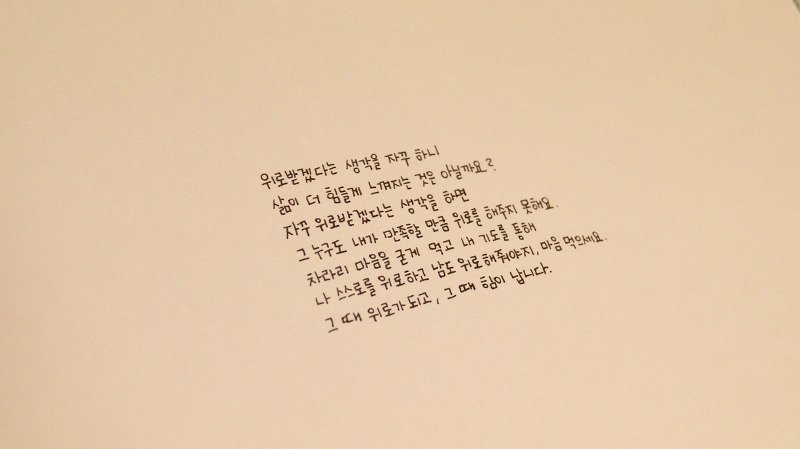 위로받겠다는 생각을 자꾸 하니
삶이 더 힘들게 느껴지는 것은 아닐까요?
자꾸 위로받겠다는 생각을 하면
그 누구도 내가 만족할 만큼 위로를 해주지 못해요.
차라리 마음을 굳게 먹고 내 기도를 통해
나 스스로를 위로하고 남도 위로해줘야지, 마음 먹으세요.
그 때 위로가 되고, 그 때 힘이 납니다.